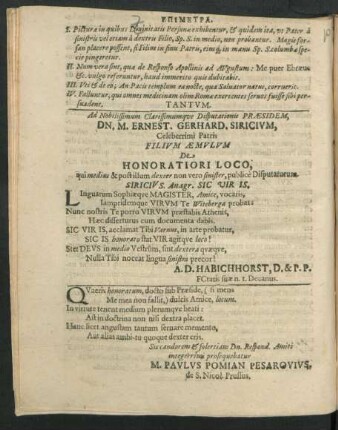 EPIMETRA.
I. Pictura in quibus Trinitatis Personæ exhibentur, & quidem ita, ut Pater à
sinistris vel etiam à dextris Filii, Sp. S. in medio, non probantur. Magis for-
san placere possent, si Filius in sinu Patris, eiusq; in manu Sp. S. columbæ spe-
cie pingeretur.
II. Num vera sint, quæ de Responso Apollinis ad Augustum: Me puer Ebræus
&c. vulgo referuntur, haud immerito quis dubitabit.
III. Vti & de eo, An Pacis templum ea nocte, qua Salvator natus, corruerit.
IV. Falluntur, qui omnes medicinam olim Romæ exercentes servos fuisse sibi per-
suadent.
TANTUM.
Ad Nobilissimum Clarissimumque Disputationis PRÆSIDEM,
DN. M. ERNEST. GERHARD. SIRICIUM,
Celeberrimi Patris
FILIUM ÆMULUM
De
HONORATIORI LOCO,
qui medius & postillum dexter non vero sinister, publicè Disputaturum.
SIRICIVS. Anagr. SIC VIR IS.
Linguarum Sophiæque MAGISTER, Amice, vocaris,
Iampridemque VIRUM Te Witeberga probat:
Nunc nostris Te porro VIRUM præstabis Athenis,
Hæc disserturus cum documenta dabis.
SIC VIR IS, acclamat Tibi Varnus, in arte probatur,
SIC IS honoratu sat VIR agitque loco!
Stet DEUS in medio Vestrûm, sint dextera quæque,
Nulla Tibi noceat lingua sinistra precor!
A. D. HABICHHORST, D. & P. P.
FCtatis suæ n. t. Decanus.
Quæris honoratum, docto sub Præside, (si mens
Me mea non fallit,) dulcis Amice, locum.
In virtute tenent medium plerumque beati:
Ast in doctrina non nisi dextra placet.
Hanc licet angustam tantum servare memento,
Aut alias ambi-tu quoque dexter eris.
Sic candorem & solertiam Dn. Respond. Amici
integerrimi prosequebatur
M. PAULUS POMIAN PESAROVIUS,
de S. Nicol. Prussus.